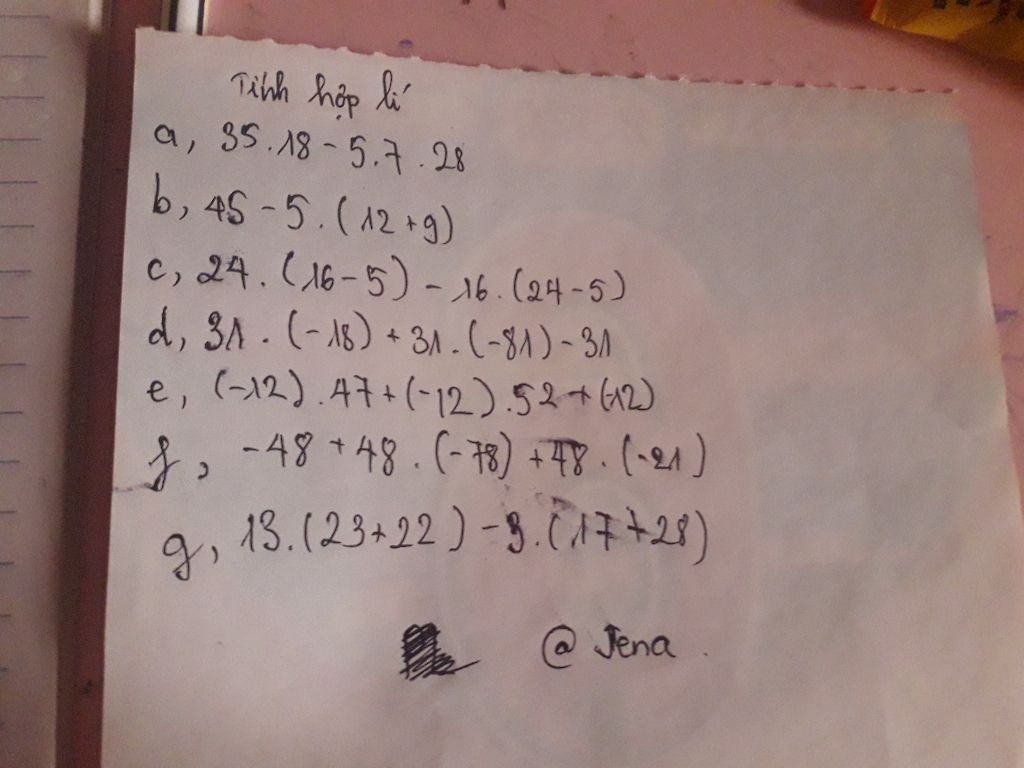 Tính hợp lí
a, 35.18 - 5.7.28
b, 45 - 5.(12+9)
c, 24.(16-5) - 16.(24-5)
d, 31.(-18) + 31.(-81) - 31
e, (-12).47 + (-12).52 + (-12)
f, -48 + 48.(-78) + 48.(-21)
g, 13.(23+22) - 3.(17+28)
@ Jena.